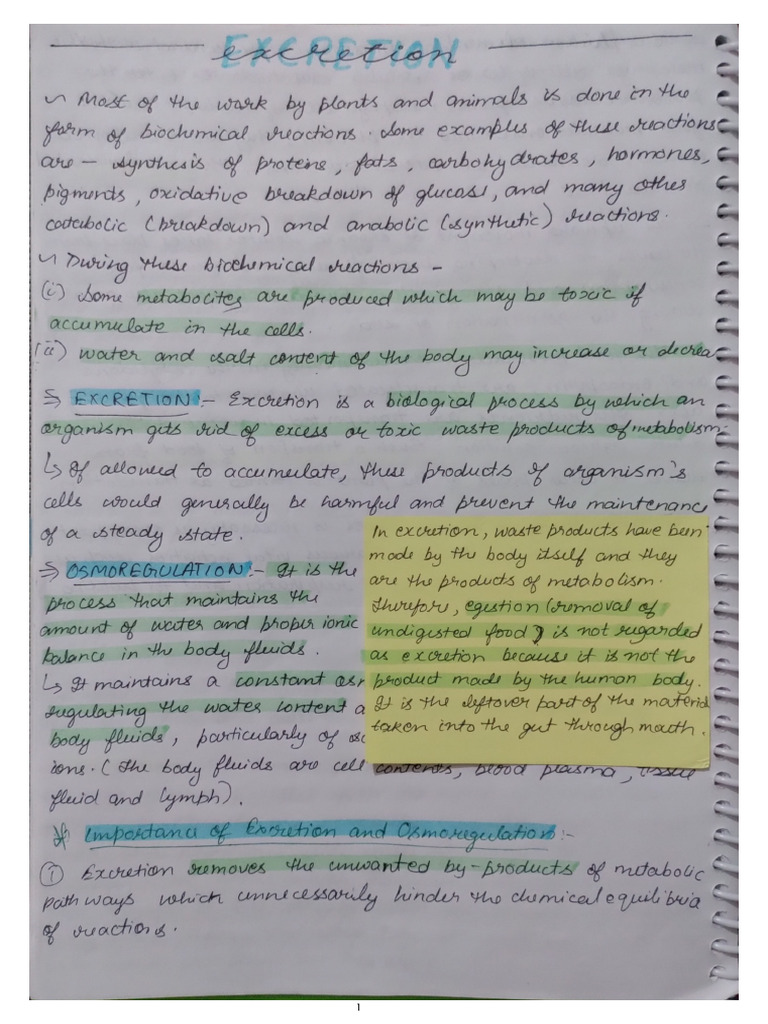 EXCRETION
excretion
~ Most of the work by plants and animals is done in the
form of biochemical reactions. Some examples of these reactions
are — synthesis of proteins, fats, carbohydrates, hormones,
pigments, oxidative breakdown of glucose, and many other
catabolic (breakdown) and anabolic (synthetic) reactions.
~ During these biochemical reactions -
(i) Some metabocites are produced which may be toxic if
accumulate in the cells.
(ii) water and salt content of the body may increase or decrea
⇒ EXCRETION :- Excretion is a biological process by which an
organism gets rid of excess or toxic waste products of metabolism.
↳ If allowed to accumulate, these products of organism's
cells would generally be harmful and prevent the maintenanc
of a steady state.
⇒ OSMOREGULATION :- It is the
process that maintains the
amount of water and proper ionic
balance in the body fluids.
↳ It maintains a constant
regulating the water content
body fluids, particularly of
ions. (the body fluids are cell contents, blood plasma, tissue
fluid and lymph).
In excretion, waste products have been
made by the body itself and they
are the products of metabolism.
Therefore, egestion (removal of
undigested food) is not regarded
as excretion because it is not the
product made by the human body.
It is the leftover part of the material
taken into the gut through mouth.
* Importance of Excretion and Osmoregulation :-
① Excretion removes the unwanted by-products of metabolic
path ways which unnecessarily hinder the chemical equilibria
of reactions.
1